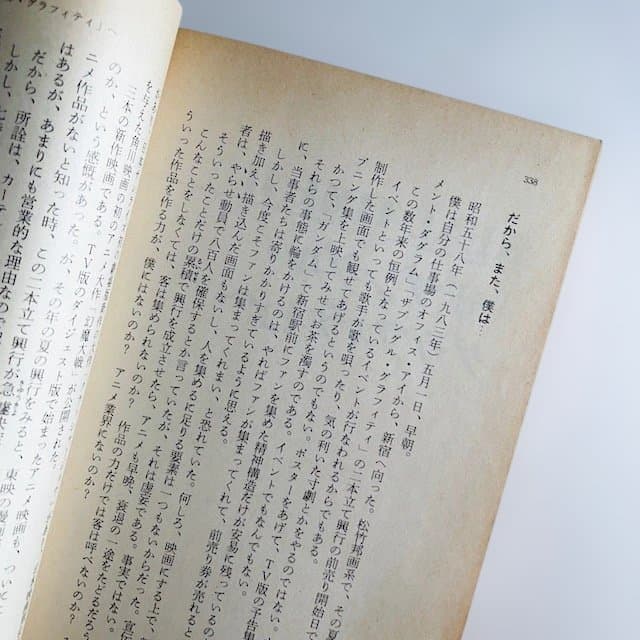 338
だから、また、僕は
昭和五十八年(一九八三年)五月一日、早朝。
僕は自分の仕事場のオフィス・アイから、新宿へ向った。松竹邦画系で、その夏
メント・ダグラム」、「ザブングル・グラフィティ」の二本立て興行の前売り開始日で
この数年来の恒例となっているイベントが行なわれるからでもある。
イベントといっても歌手が歌を唄ったり、気の利いた寸劇とかをやるのではない。
制作した画面でも観せてあげるというのでもない。ポスターをあげて、TV版の予告集
プニング集を上映してみせてお茶を濁すのである。イベントでもなんでもない。
かつて、「ガンダム」で新宿駅前にファンを集めた精神構造だけが安易に残っている
それらの事態に輪をかけるのは、やればファンが集まってくれて、前売り券が売れると
に、当事者たちは寄りかかりすぎているように思える。
しかし、今度こそファンは集まってくれまい、と恐れていた。何しろ、映画にする上で、
描き加え、描き込んだ画面もないし、人を集めるに足りる要素は一つもないからだった。
者は、やらい、動員で八百人を確保するとか言っていたが、それは虚妄である。事実ではない。宣伝
そういったことだけの累積で興行を成立させたら、アニメも早晩、衰退の一途をたどるだろう
こんなことをしなくては、客は集められないのか? 作品の力だけでは客は呼べないのか?
ういった作品を作る力が、僕にはないのか? アニメ業界にないのか?
グラフィティ」へ
三本の新作映画である。
のな、という感慨があった。が、その年の夏の興行をみると、
ニメ作品がないと知った時、この二本立て興行が急
はあるが、あまりにも営業的な理由なので
だから、所詮は、
しかし、